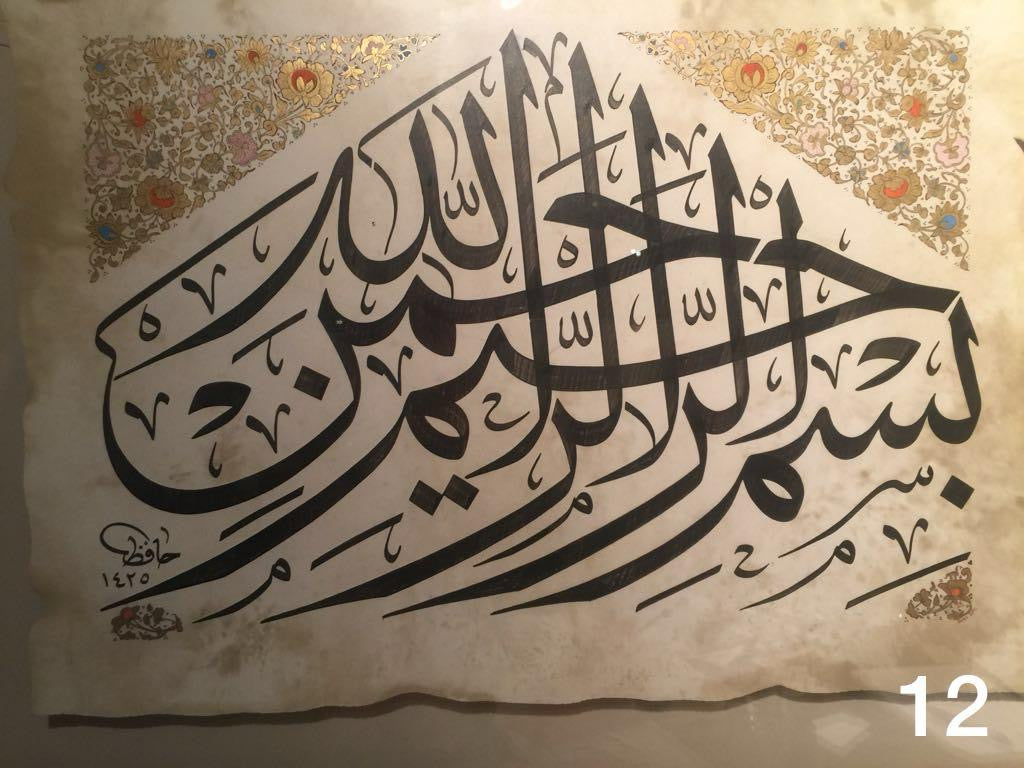 بسم الله الرحمن الرحيم
حافظ
١٤٢٥
12